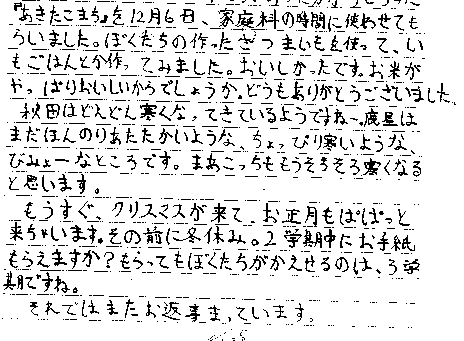 『あきたこまち』を12月6日、家庭科の時間に使わせても
らいました。ぼくたちの作ったさつまいもを使って、い
もごはんとか作ってみました。おいしかったです。お米が
やっぱりおいしいからでしょうか。どうもありがとうございました。
秋田はどんどん寒くなってきているようですね〜。鹿島は
まだほんのりあたたかいような、ちょっぴり寒いような、
びみょーなところです。まあこっちももうそろそろ寒くなる
と思います。
もうすぐ、クリスマスが来て、お正月もぱぱっと
来ちゃいます。その前に冬休み。2学期中にお手紙
もらえますか?もらってもぼくたちがかえせるのは、3学
期ですね。
それではまたお返事まっています。